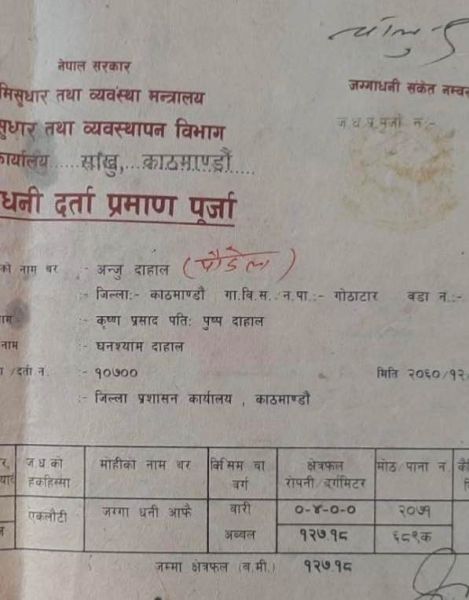 नेपाल सरकार
मिसुधार तथा व्यवस्था मन्त्रालय
जग्गाधनी संकेत नम्बर
सुधार तथा व्यवस्थापन विभाग
ज.ध.प्र.पूर्जा नं:-
कार्यालय.....साँखु, काठमाण्डौ
धनी दर्ता प्रमाण पूर्जा
को नाम थर :- अन्जु दाहाल (पौडेल)
:- जिल्ला:- काठमाण्डौ गा.वि.स./न.पा.:- गोठाटार वडा न.:-
नाम :- कृष्ण प्रसाद पति: पुष्प दाहाल
नाम :- घनश्याम दाहाल
/दर्ता न. :- १०७०० मिति २०६०/१२/
:- जिल्ला प्रशासन कार्यालय , काठमाण्डौ
ज.ध.को हकहिस्सा मोहीको नाम थर किसिम वा वर्ग क्षेत्रफल रोपनी/वर्गमिटर मोठ/पाना न.
एकलौटी जग्गा धनी आफै बारी ०-४-०-० २०७१
अब्बल १२७.१८ ६८९क
जम्मा क्षेत्रफल (ब.मी.) १२७.१८